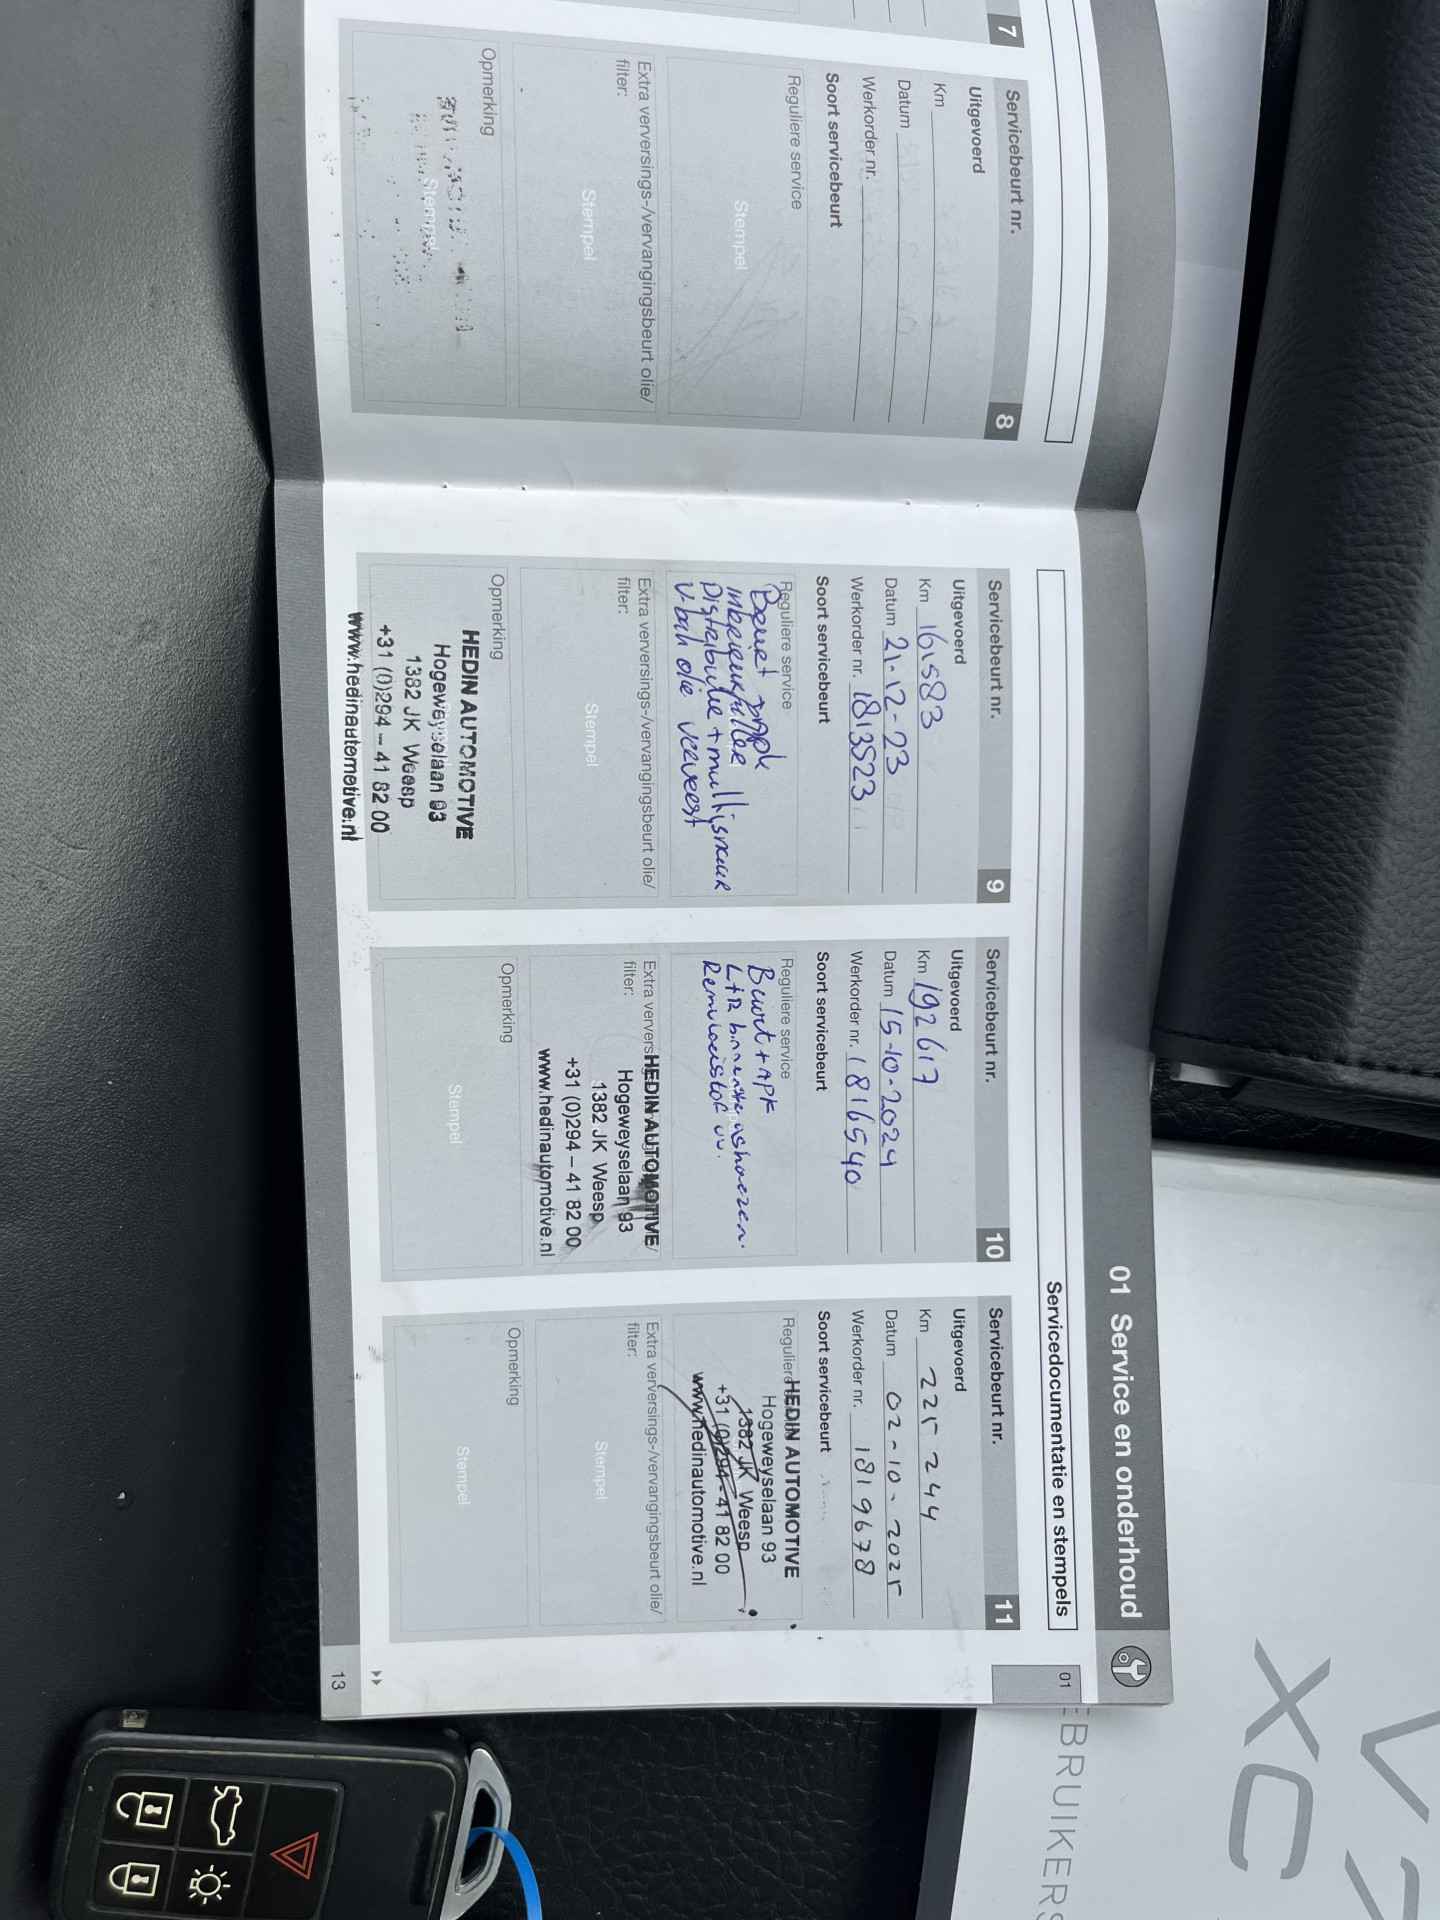 7
Servicebeurt nr. 8
Uitgevoerd
Km
Datum
Werkorder nr.
Soort servicebeurt
Reguliere service
Stempel
Extra verversings-/vervangingsbeurt olie/
filter:
Stempel
Opmerking
Stempel
01 Service en onderhoud
Servicedocumentatie en stempels
01
Servicebeurt nr. 9
Uitgevoerd
Km 161583
Datum 21-12-23
Werkorder nr. 1813523
Soort servicebeurt
Reguliere service
Beurt
Distributie + multisnaar
olie ververst
Extra verversings-/vervangingsbeurt olie/
filter:
Stempel
Opmerking
HEDIN AUTOMOTIVE
Hogeweyselaan 93
1382 JK Weesp
+31 (0)294 – 41 82 00
www.hedinautomotive.nl
Servicebeurt nr. 10
Uitgevoerd
Km 192617
Datum 15-10-2024
Werkorder nr. 1816540
Soort servicebeurt
Reguliere service
Beurt + APK
L+R binnenste
Remvloeistof vv.
Extra ververs
filter:
HEDIN AUTOMOTIVE
Hogeweyselaan 93
1382 JK Weesp
+31 (0)294 – 41 82 00
www.hedinautomotive.nl
Opmerking
Stempel
Servicebeurt nr. 11
Uitgevoerd
Km 225 244
Datum 02-10-2025
Werkorder nr. 1819678
Soort servicebeurt
Reguliere
HEDIN AUTOMOTIVE
Hogeweyselaan 93
1382 JK Weesp
+31 (0)294 – 41 82 00
www.hedinautomotive.nl
Extra verversings-/vervangingsbeurt olie/
filter:
Stempel
Opmerking
Stempel
13
XC